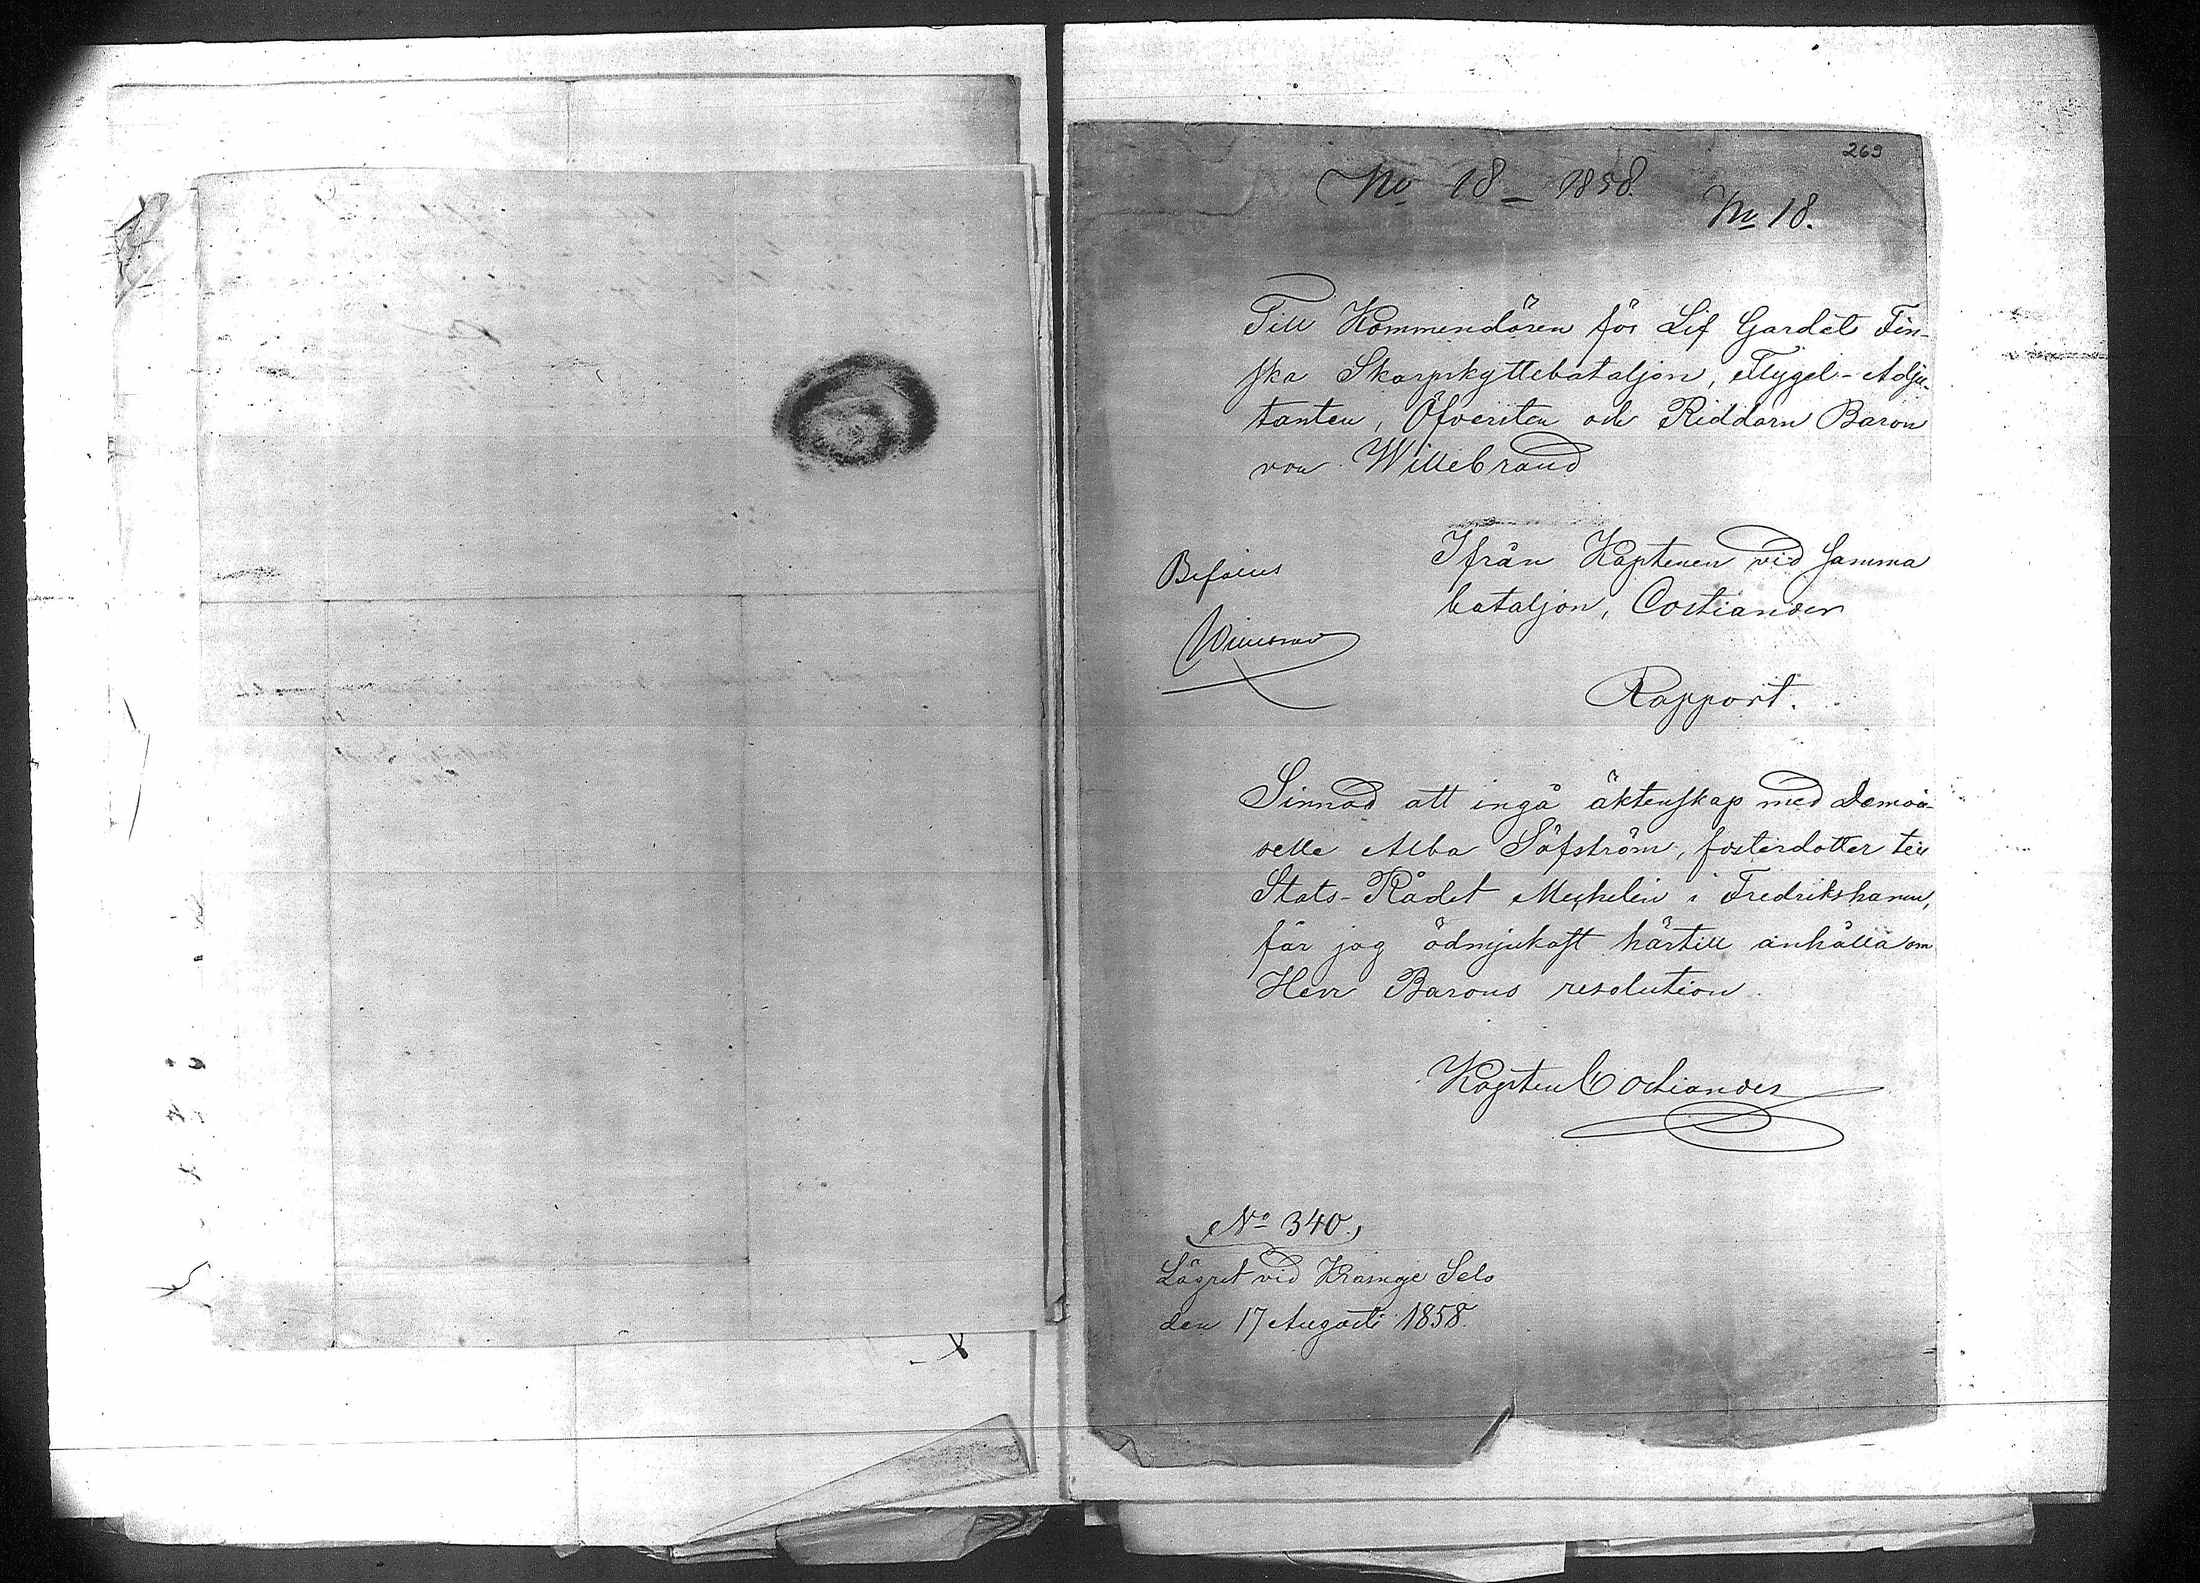 269
No 18 – 1858.
No 18.
Till Kommendören för Lif Gardets Fin-
ska Skarpskyttebataljon, Flygel-Adju-
tanten, Öfversten och Riddarn Baron
von Willebrand
Ifrån Kaptenen vid samma
bataljon, Costiander
Bifalles
Willebrand
Rapport.
Sinnad att ingå äktenskap med Demoi-
selle Alba Söfström, fosterdotter till
Stats-Rådet Mechelin i Fredrikshamn,
får jag ödmjukast härtill anhålla om
Herr Barons resolution.
Kapten Costiander
No 340.
Lägret vid Krasnoje Selo
den 17 Augusti 1858.